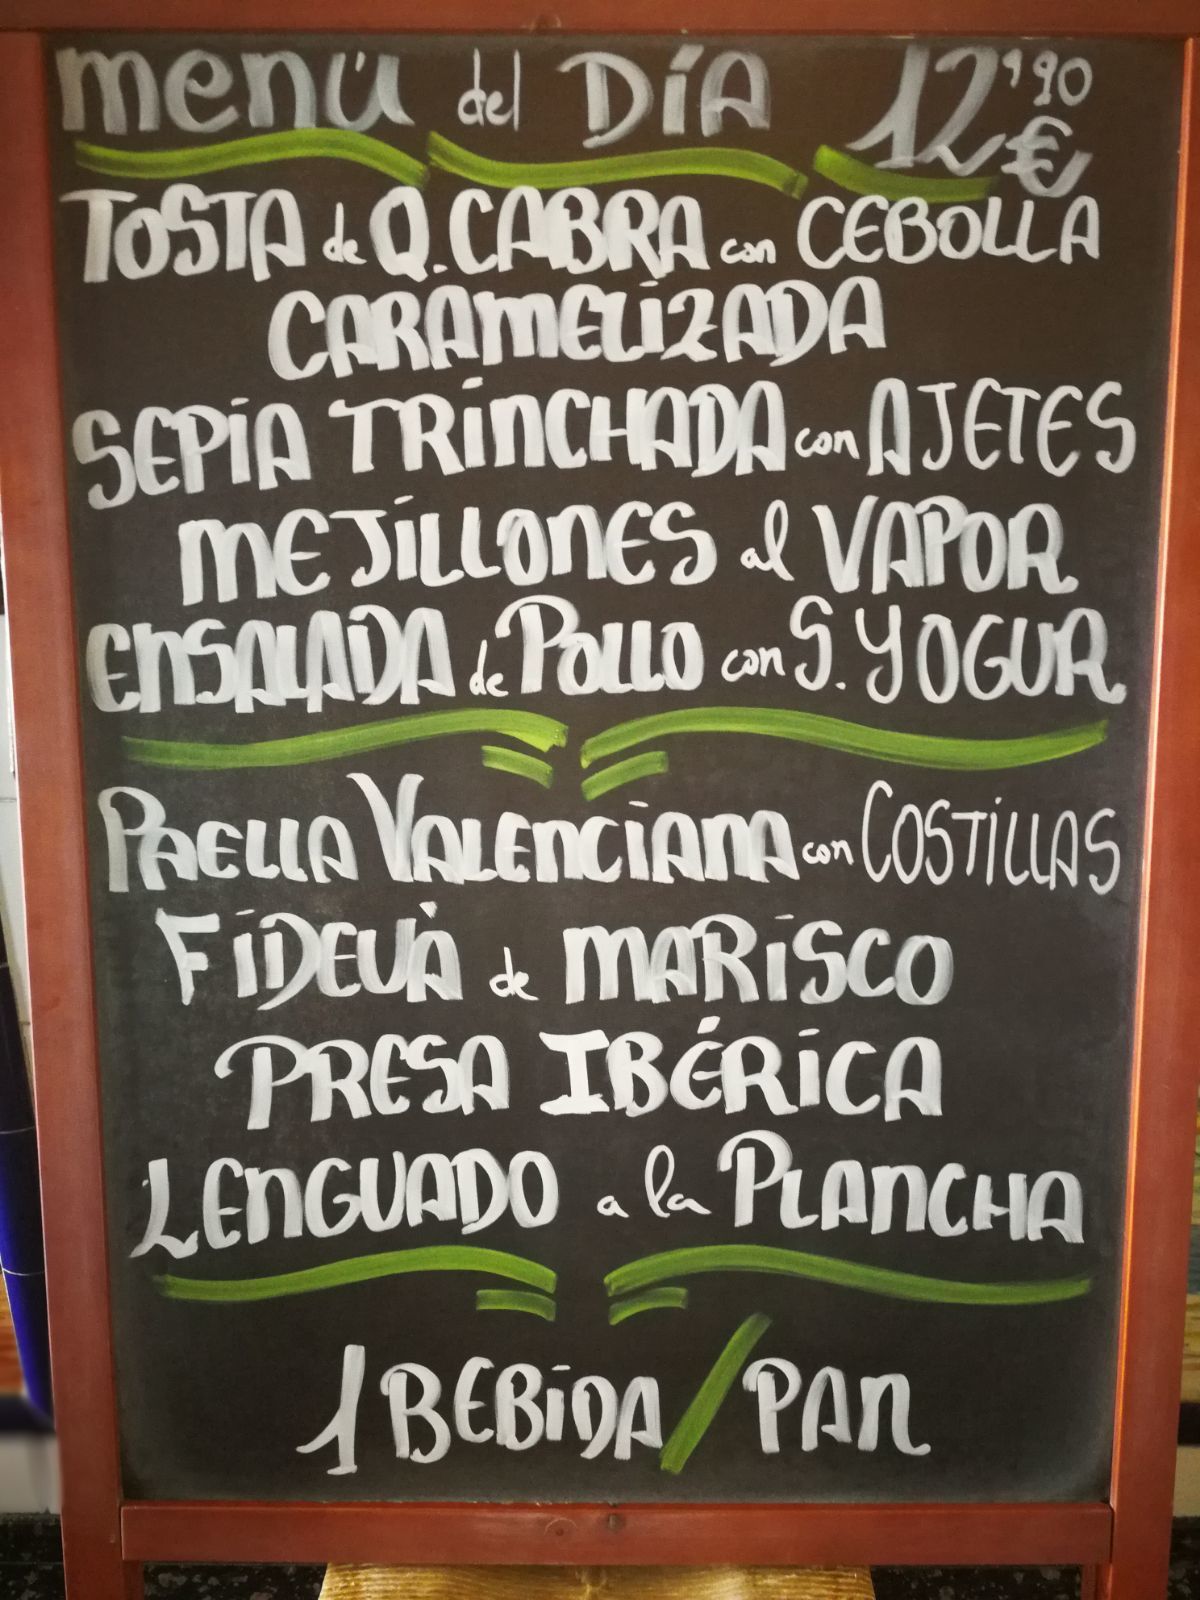 menú del DÍA 12'90 €
TOSTA de Q. CABRA con CEBOLLA
CARAMELIZADA
SEPIA TRINCHADA con AJETES
MEJILLONES al VAPOR
ENSALADA de POLLO con S. YOGUR
PAELLA VALENCIANA con COSTILLAS
FIDEUÀ de MARISCO
PRESA IBÉRICA
LENGUADO a la PLANCHA
1 BEBIDA / PAN